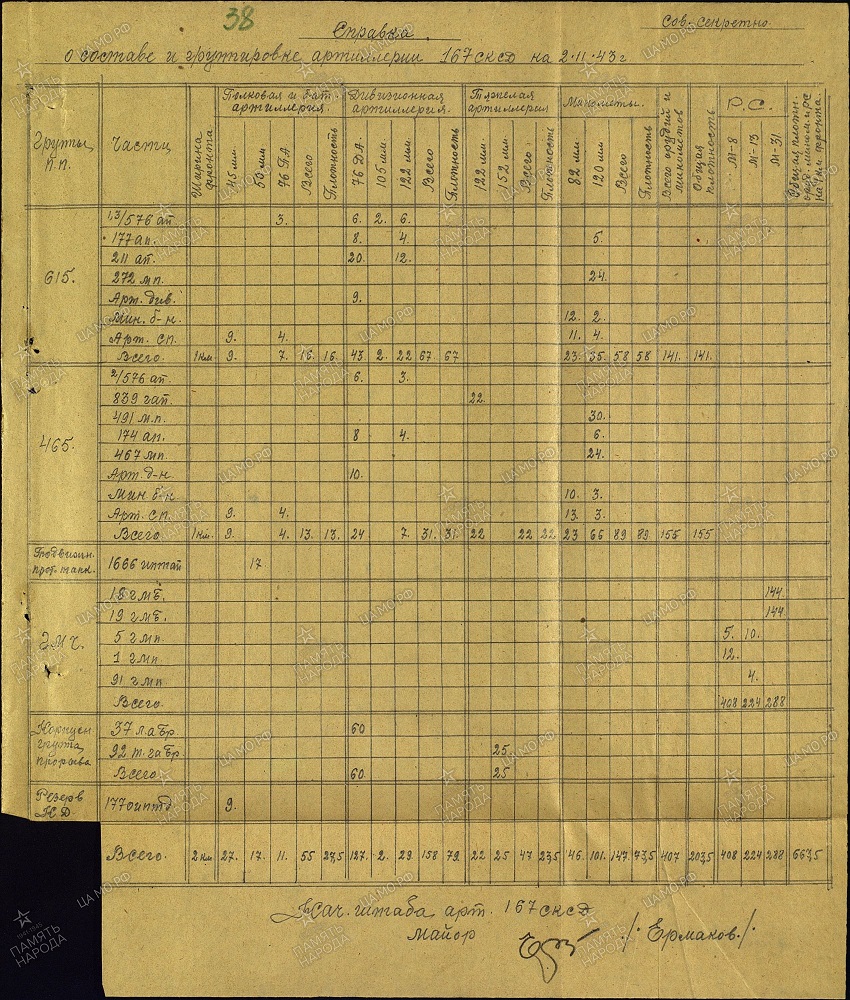 38
Сов. секретно
Справка
о составе и группировке артиллерии 167 сксд на 2.11.43 г
Группы п.п. | Части | Ширина фронта | Полковая и бат. артиллерия. | Дивизионная артиллерия. | Тяжелая артиллерия | Минометы. | Всего орудий и минометов | Общая плотность | Р.С. | Общая плотн.
45 мм. | 50 мм | 76 ПА | Всего | Плотность | 76 ДА. | 105 мм. | 122 мм. | Всего | Плотность | 122 мм. | 152 мм. | Всего | Плотность | 82 мм. | 120 мм. | Всего | Плотность | М-8 | М-13 | М-31
615.
1,3/576 ап | 3. | 6. | 2. | 6.
177 ап. | 8. | 4. | 5.
211 ап. | 20. | 12.
272 мп. | 24.
Арт. див. | 9.
Мин. б-н. | 12. | 2.
Арт. сп. | 9. | 4. | 11. | 4.
Всего | 1 км | 9. | 7. | 16. | 16. | 43 | 2. | 22 | 67 | 67 | 23. | 35. | 58 | 58 | 141. | 141.
465.
2/576 ап | 6. | 3.
839 гап. | 22.
491 м.п. | 30.
174 ап. | 8 | 4. | 6.
467 мп. | 24.
Арт. д-н. | 10.
Мин б-н | 10. | 3.
Арт. сп. | 9. | 4. | 13. | 3.
Всего | 1 км. | 9. | 4. | 13. | 13. | 24 | 7. | 31. | 31. | 22 | 22 | 22 | 23 | 66 | 89 | 89 | 155 | 155
Подвижн. прот. танк. | 1666 иптап | 17
ГМЧ.
18 гмб. | 144.
19 гмб. | 144.
5 гмп. | 5. | 10.
1 гмп | 12.
91 гмп. | 4.
Всего. | 408 | 224 | 288
Корпусн группа прорыва
37 лабр. | 60
92 т. габр. | 25.
Всего | 60 | 25.
Резерв КД. | 177 оиптд | 9.
Всего. | 2 км | 27. | 17. | 11. | 55 | 27,5 | 127. | 2. | 29 | 158 | 79. | 22 | 25 | 47 | 23,5 | 46. | 101. | 147. | 73,5 | 407 | 203,5 | 408 | 224 | 288 | 663,5
Нач. штаба арт. 167 сксд
майор
/. Ермаков./.
ПАМЯТЬ НАРОДА
ЦАМО.РФ